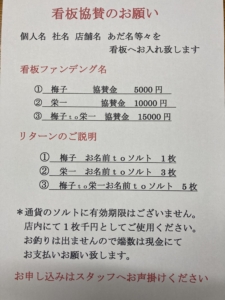 看板協賛のお願い
個人名 社名 店舗名 あだ名等々を
看板へお入れ致します
看板ファンデング名
① 梅子 協賛金 5000円
② 栄一 協賛金 10000円
③ 梅子to栄一 協賛金 15000円
リターンのご説明
① 梅子 お名前toソルト 1枚
② 栄一 お名前toソルト 3枚
③ 梅子to栄一お名前toソルト 5枚
＊通貨のソルトに有効期限はございません。
店内にて1枚千円としてご使用ください。
お釣りは出ませんので端数は現金にて
お支払いお願い致します。
お申し込みはスタッフへお声掛けください